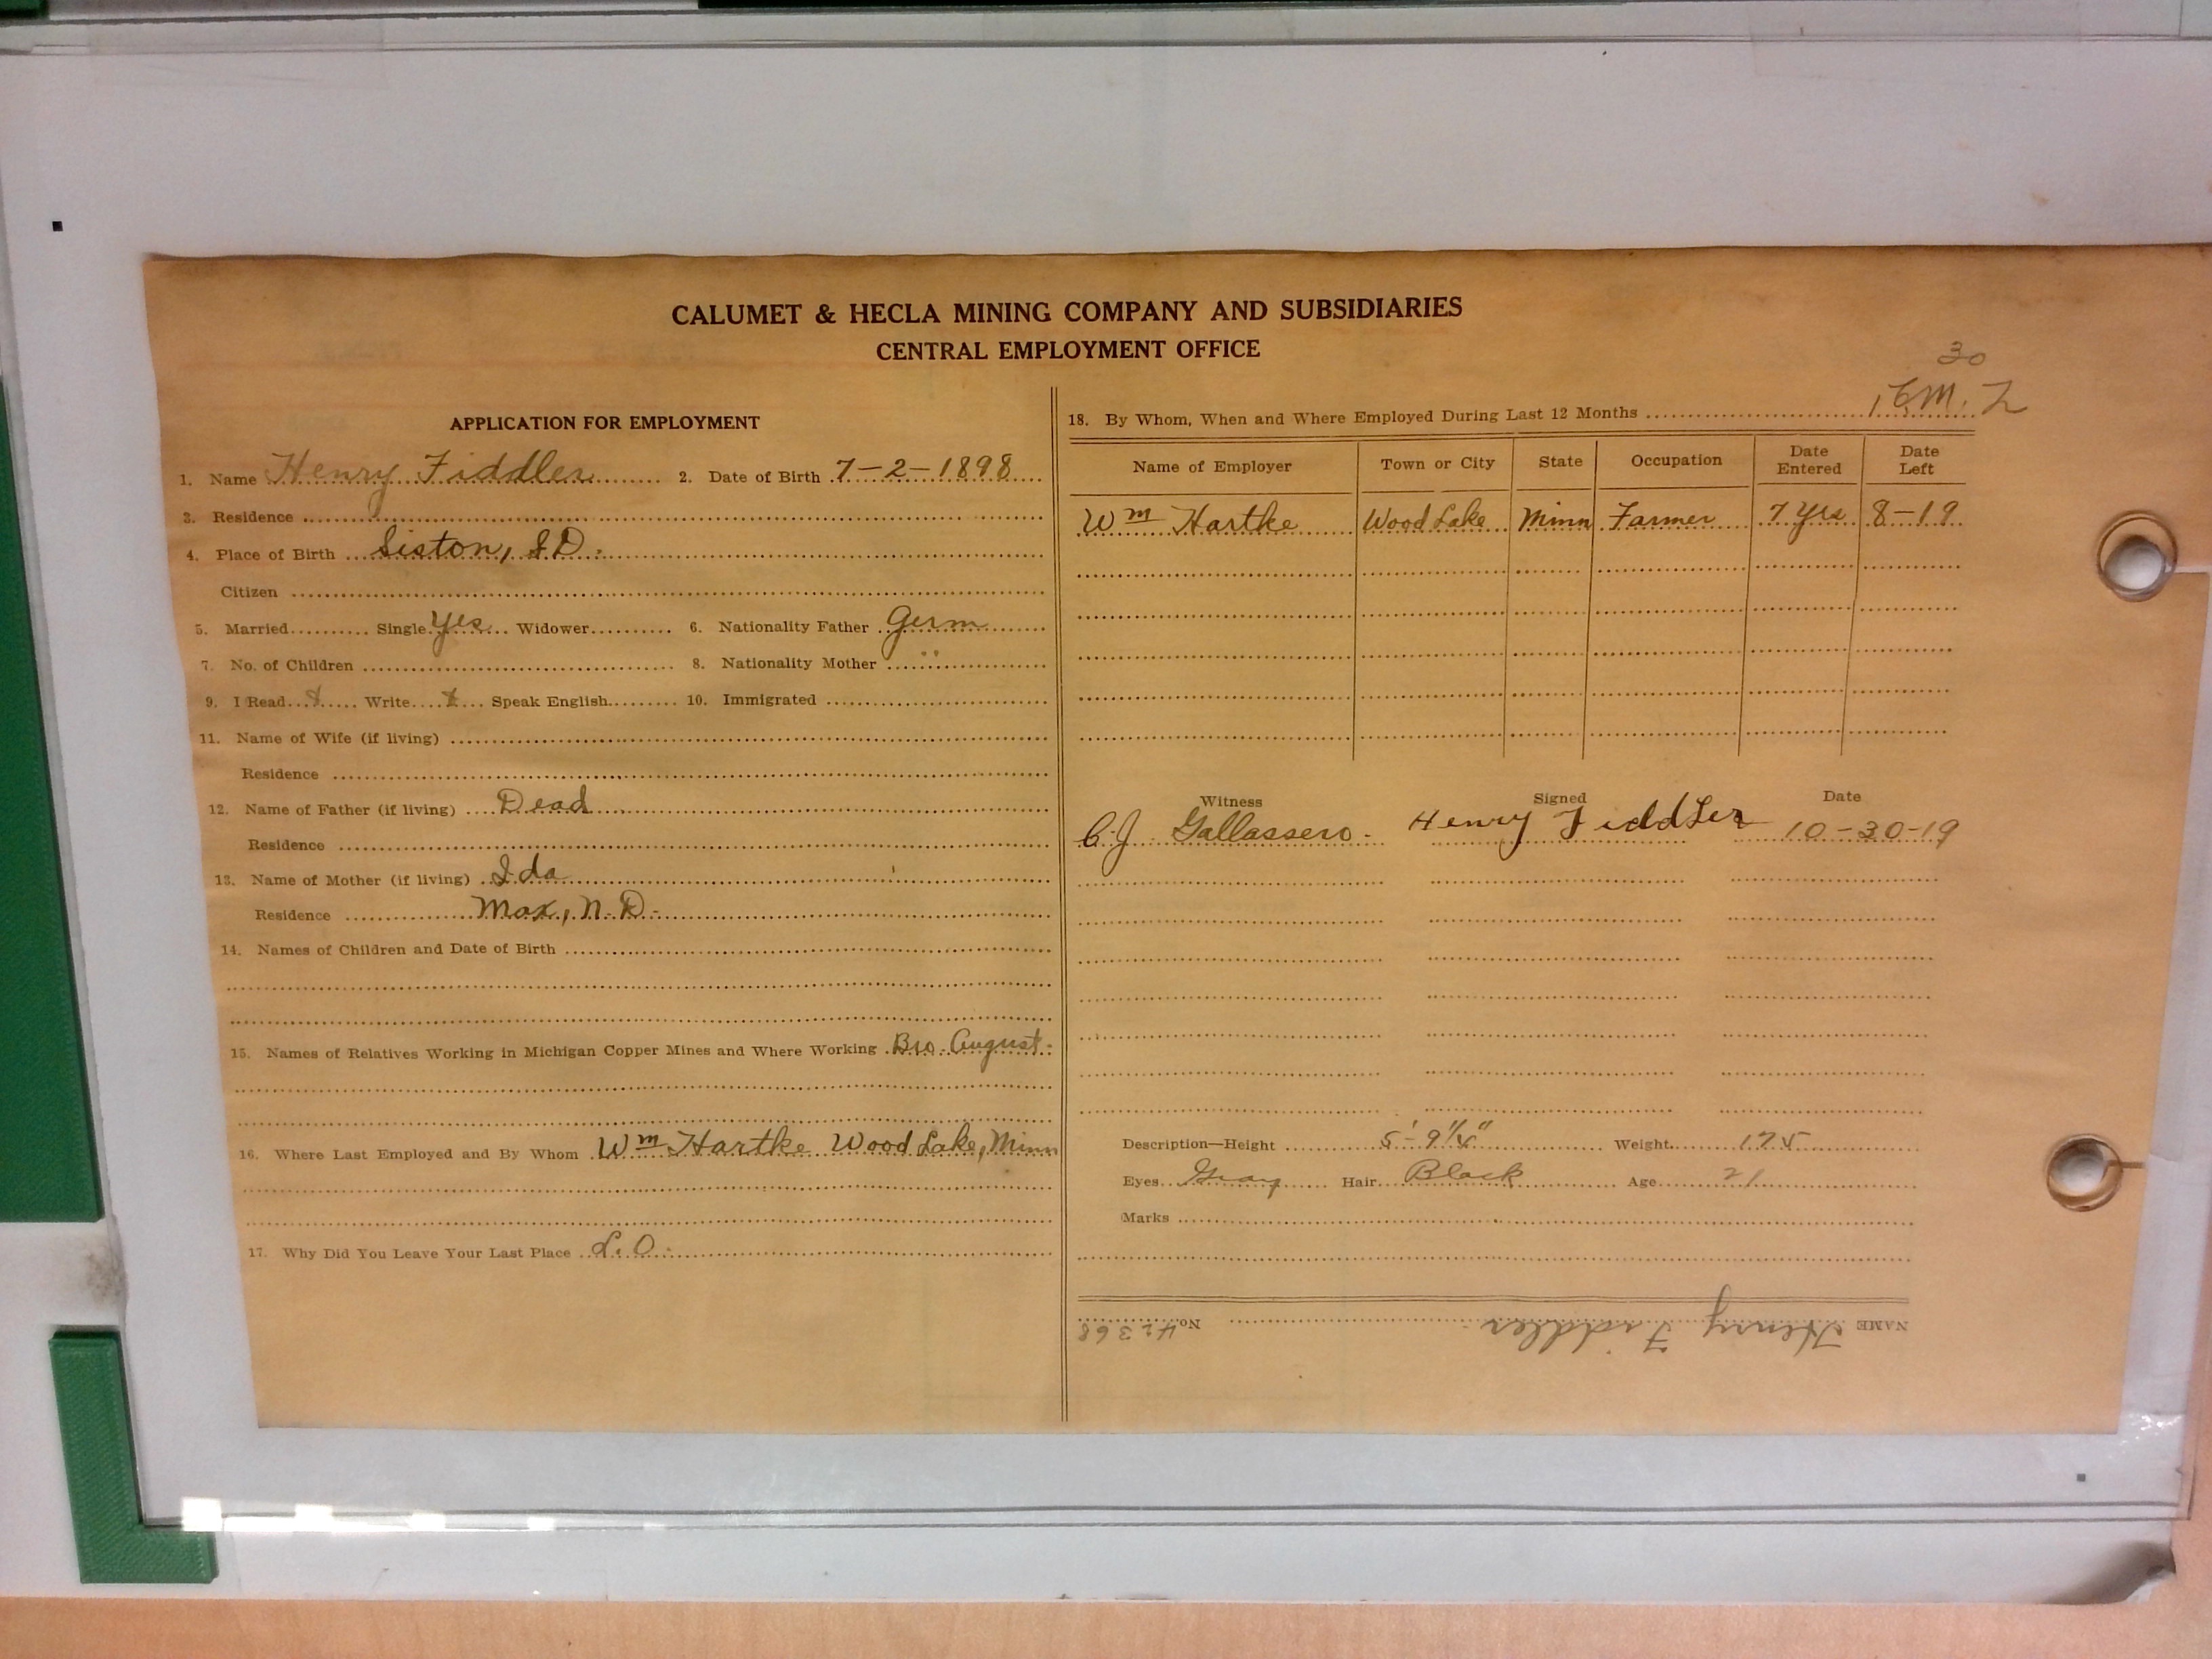 CALUMET & HECLA MINING COMPANY AND SUBSIDIARIES
CENTRAL EMPLOYMENT OFFICE
30
APPLICATION FOR EMPLOYMENT
1. Name Henry Fiddler 2. Date of Birth 7-2-1898
3. Residence
4. Place of Birth Siston, S.D.
Citizen
5. Married Single Yes Widower 6. Nationality Father Germ
7. No. of Children 8. Nationality Mother "
9. I Read Write Speak English 10. Immigrated
11. Name of Wife (if living)
Residence
12. Name of Father (if living) Dead
Residence
13. Name of Mother (if living) Ida
Residence Max, N.D.
14. Names of Children and Date of Birth
15. Names of Relatives Working in Michigan Copper Mines and Where Working Bro. August.
16. Where Last Employed and By Whom Wm Hartke Wood Lake, Minn
17. Why Did You Leave Your Last Place L.O.
18. By Whom, When and Where Employed During Last 12 Months
Name of Employer Town or City State Occupation Date Entered Date Left
Wm Hartke Wood Lake Minn Farmer 7 Yrs 8-19
Witness Signed Date
C.J. Gallassero. Henry Fiddler 10-30-19
Description—Height 5'-9 1/4" Weight 175
Eyes Gray Hair Black Age 21
Marks
NAME Henry Fiddler No. 42368